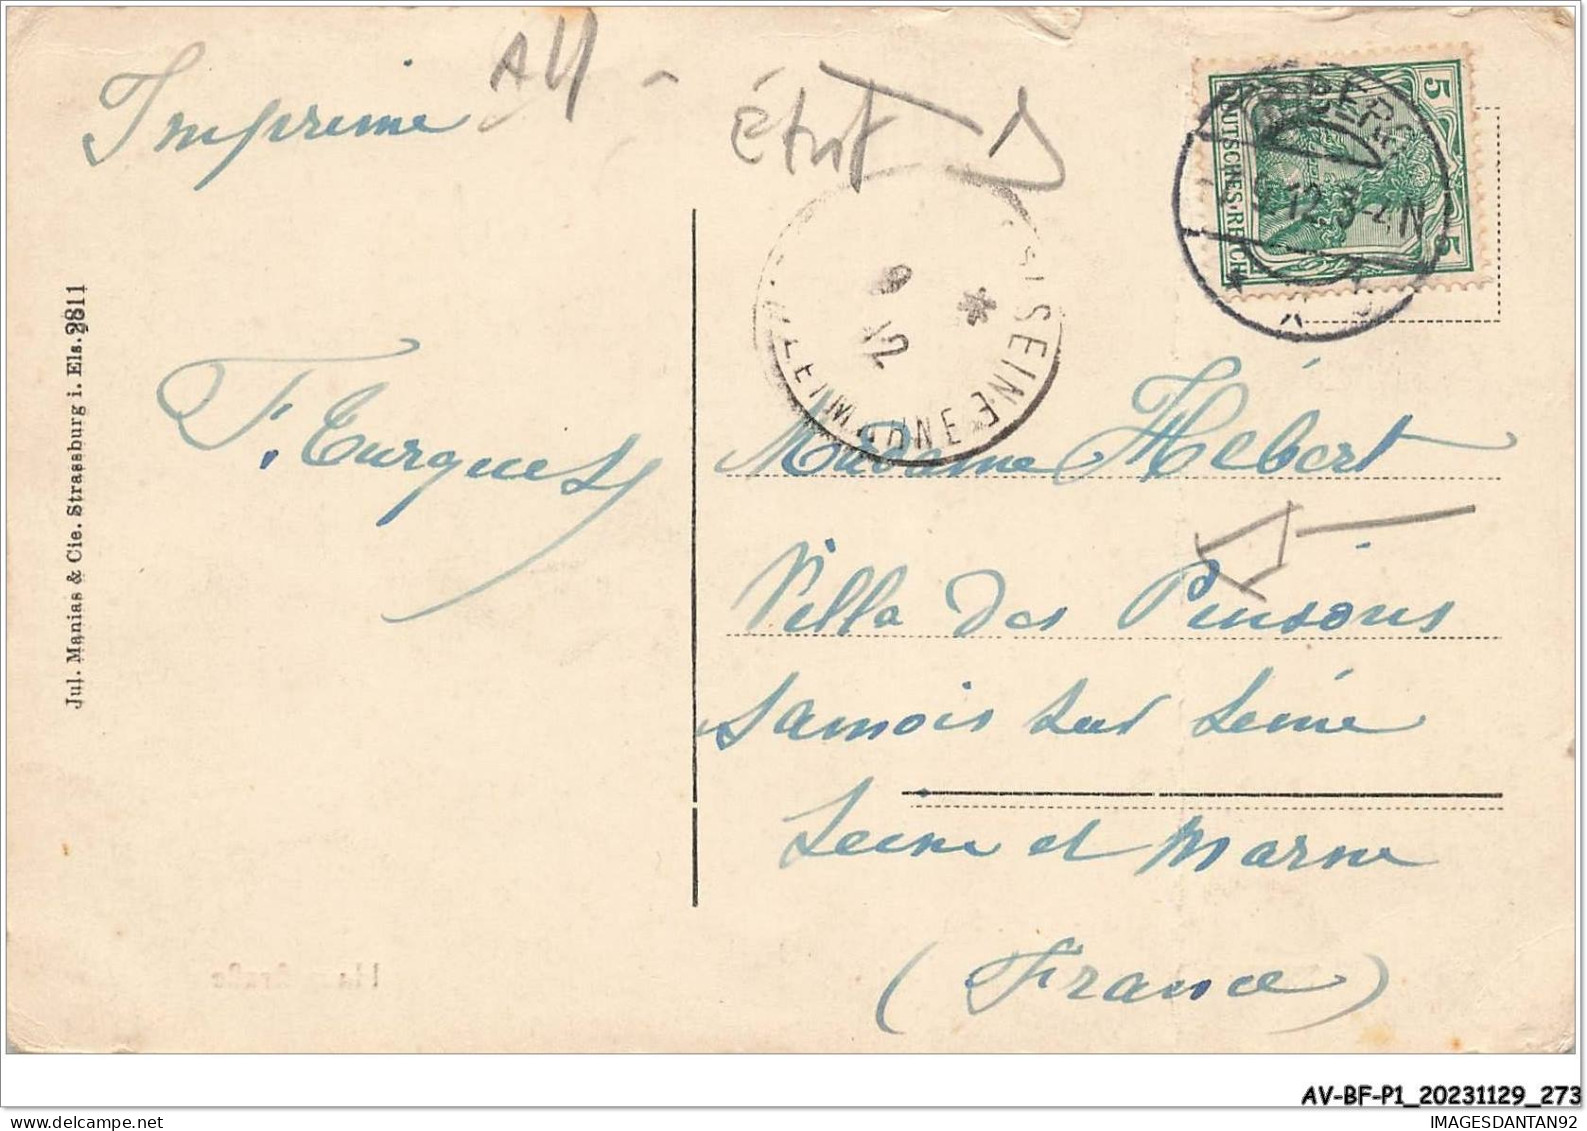 Imprimé
All -
État
5 5
DEUTSCHES REICH
BERG
12.3-4N
S/SEINE
9
12
*
SEINE-ET-MARNE
Jul. Manias & Cie. Strassburg i. Els. 2811
F. Turquety
Madame Hébert
Villa des Pinsons
Samois sur Seine
Seine et Marne
(France)
AV-BF-P1_20231129_273
IMAGESDANTAN92